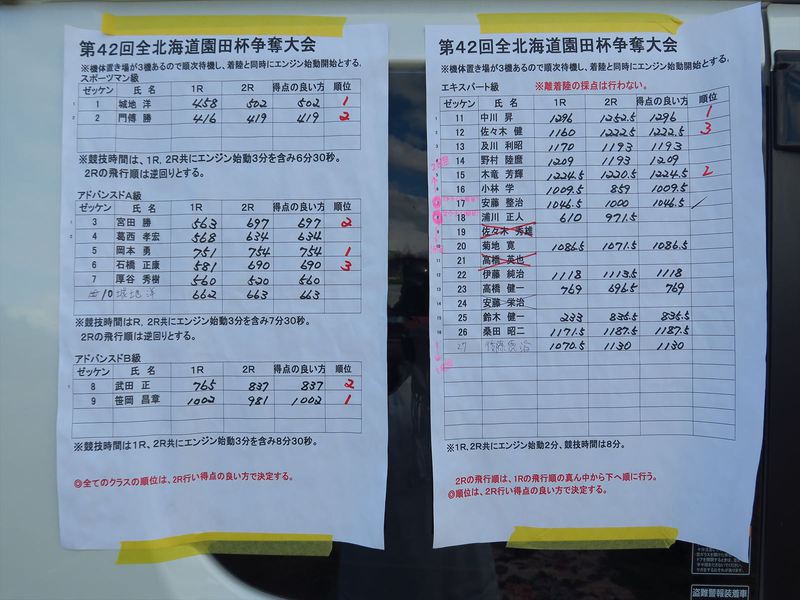 第42回全北海道園田杯争奪大会
※機体置き場が3機あるので順次待機し、着陸と同時にエンジン始動開始とする。
スポーツマン級
ゼッケン 氏 名 1R 2R 得点の良い方 順位
1 城地 洋 458 502 502 1
2 門傅 勝 416 419 419 2
※競技時間は、1R, 2R共にエンジン始動3分を含み6分30秒。
2Rの飛行順は逆回りとする。
アドバンスドA級
ゼッケン 氏 名 1R 2R 得点の良い方 順位
3 宮田 勝 563 697 697 2
4 葛西 孝宏 568 634 634
5 岡本 勇 751 754 754 1
6 石橋 正康 581 690 690 3
7 厚谷 秀樹 560 520 560
#10 城地 洋 662 663 663
※競技時間はR, 2R共にエンジン始動3分を含み7分30秒。
2Rの飛行順は逆回りとする。
アドバンスドB級
ゼッケン 氏 名 1R 2R 得点の良い方 順位
8 武田 正 765 837 837 2
9 笹岡 昌章 1002 981 1002 1
※競技時間は1R、2R共にエンジン始動3分を含み8分30秒。
◎全てのクラスの順位は、2R行い得点の良い方で決定する。
第42回全北海道園田杯争奪大会
※機体置き場が3機あるので順次待機し、着陸と同時にエンジン始動開始とする。
エキスパート級 ※離着陸の採点は行わない。
ゼッケン 氏 名 1R 2R 得点の良い方 順位
11 中川 昇 1296 1252.5 1296 1
12 佐々木 健 1160 1222.5 1222.5 3
13 及川 利昭 1170 1193 1193
14 野村 陸麿 1209 1193 1209
15 木竜 芳輝 1224.5 1220.5 1224.5 2
16 小林 学 1009.5 859 1009.5
17 安藤 整治 1046.5 1000 1046.5
18 浦川 正人 610 971.5
19 佐々木 秀雄
20 菊地 寛 1086.5 1071.5 1086.5
21 高橋 英也
22 伊藤 純治 1118 1113.5 1118
23 高橋 健一 769 696.5 769
24 安藤 栄治
25 鈴木 健一 233 836.5 836.5
26 桑田 昭二 1171.5 1187.5 1187.5
27 1070.5 1130 1130
※1R, 2R共にエンジン始動2分、競技時間は8分。
2Rの飛行順は、1Rの飛行順の真ん中から下へ順に行う。
◎順位は、2R行い得点の良い方で決定する。
盗難警報装着車